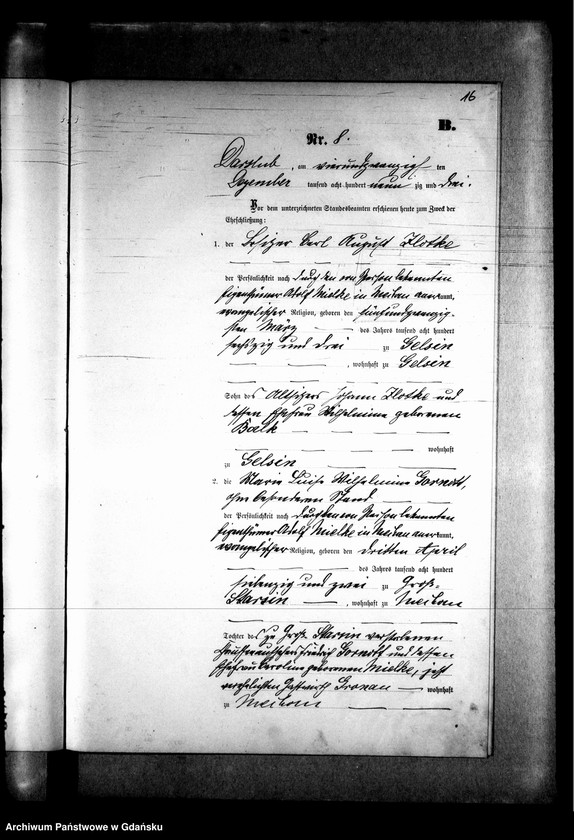 16
B.
Nr. 8.
Darslub, am vierundzwanzigsten
Dezember tausend acht hundert neunzig und drei.
Vor dem unterzeichneten Standesbeamten erschienen heute zum Zweck der
Eheschließung:
1. der Besitzer Carl August Zlotke
der Persönlichkeit nach durch den von Person bekannten
Eigenthümer Adolf Mielke in anerkannt,
evangelischer Religion, geboren den fünfundzwanzig-
sten März des Jahres tausend acht hundert
sechszig und drei zu Gelsin
, wohnhaft zu Gelsin
Sohn des Altsitzers Johann Zlotke und
dessen Ehefrau Wilhelmine geborenen
wohnhaft
zu Gelsin
2. die Marie Luise Wilhelmine
ohne besonderen Stand
der Persönlichkeit nach durch den von Person bekannten
Eigenthümer Adolf Mielke in anerkannt,
evangelischer Religion, geboren den dritten April
des Jahres tausend acht hundert
siebenzig und zwei zu Groß-
Starsin, wohnhaft zu
Tochter des zu Groß Starsin verstorbenen
Friedrich und dessen
Ehefrau Caroline geborenen Mielke, jetzt
verehelichten Gastwirth Gronau wohnhaft
zu
Archiwum Państwowe w Gdańsku